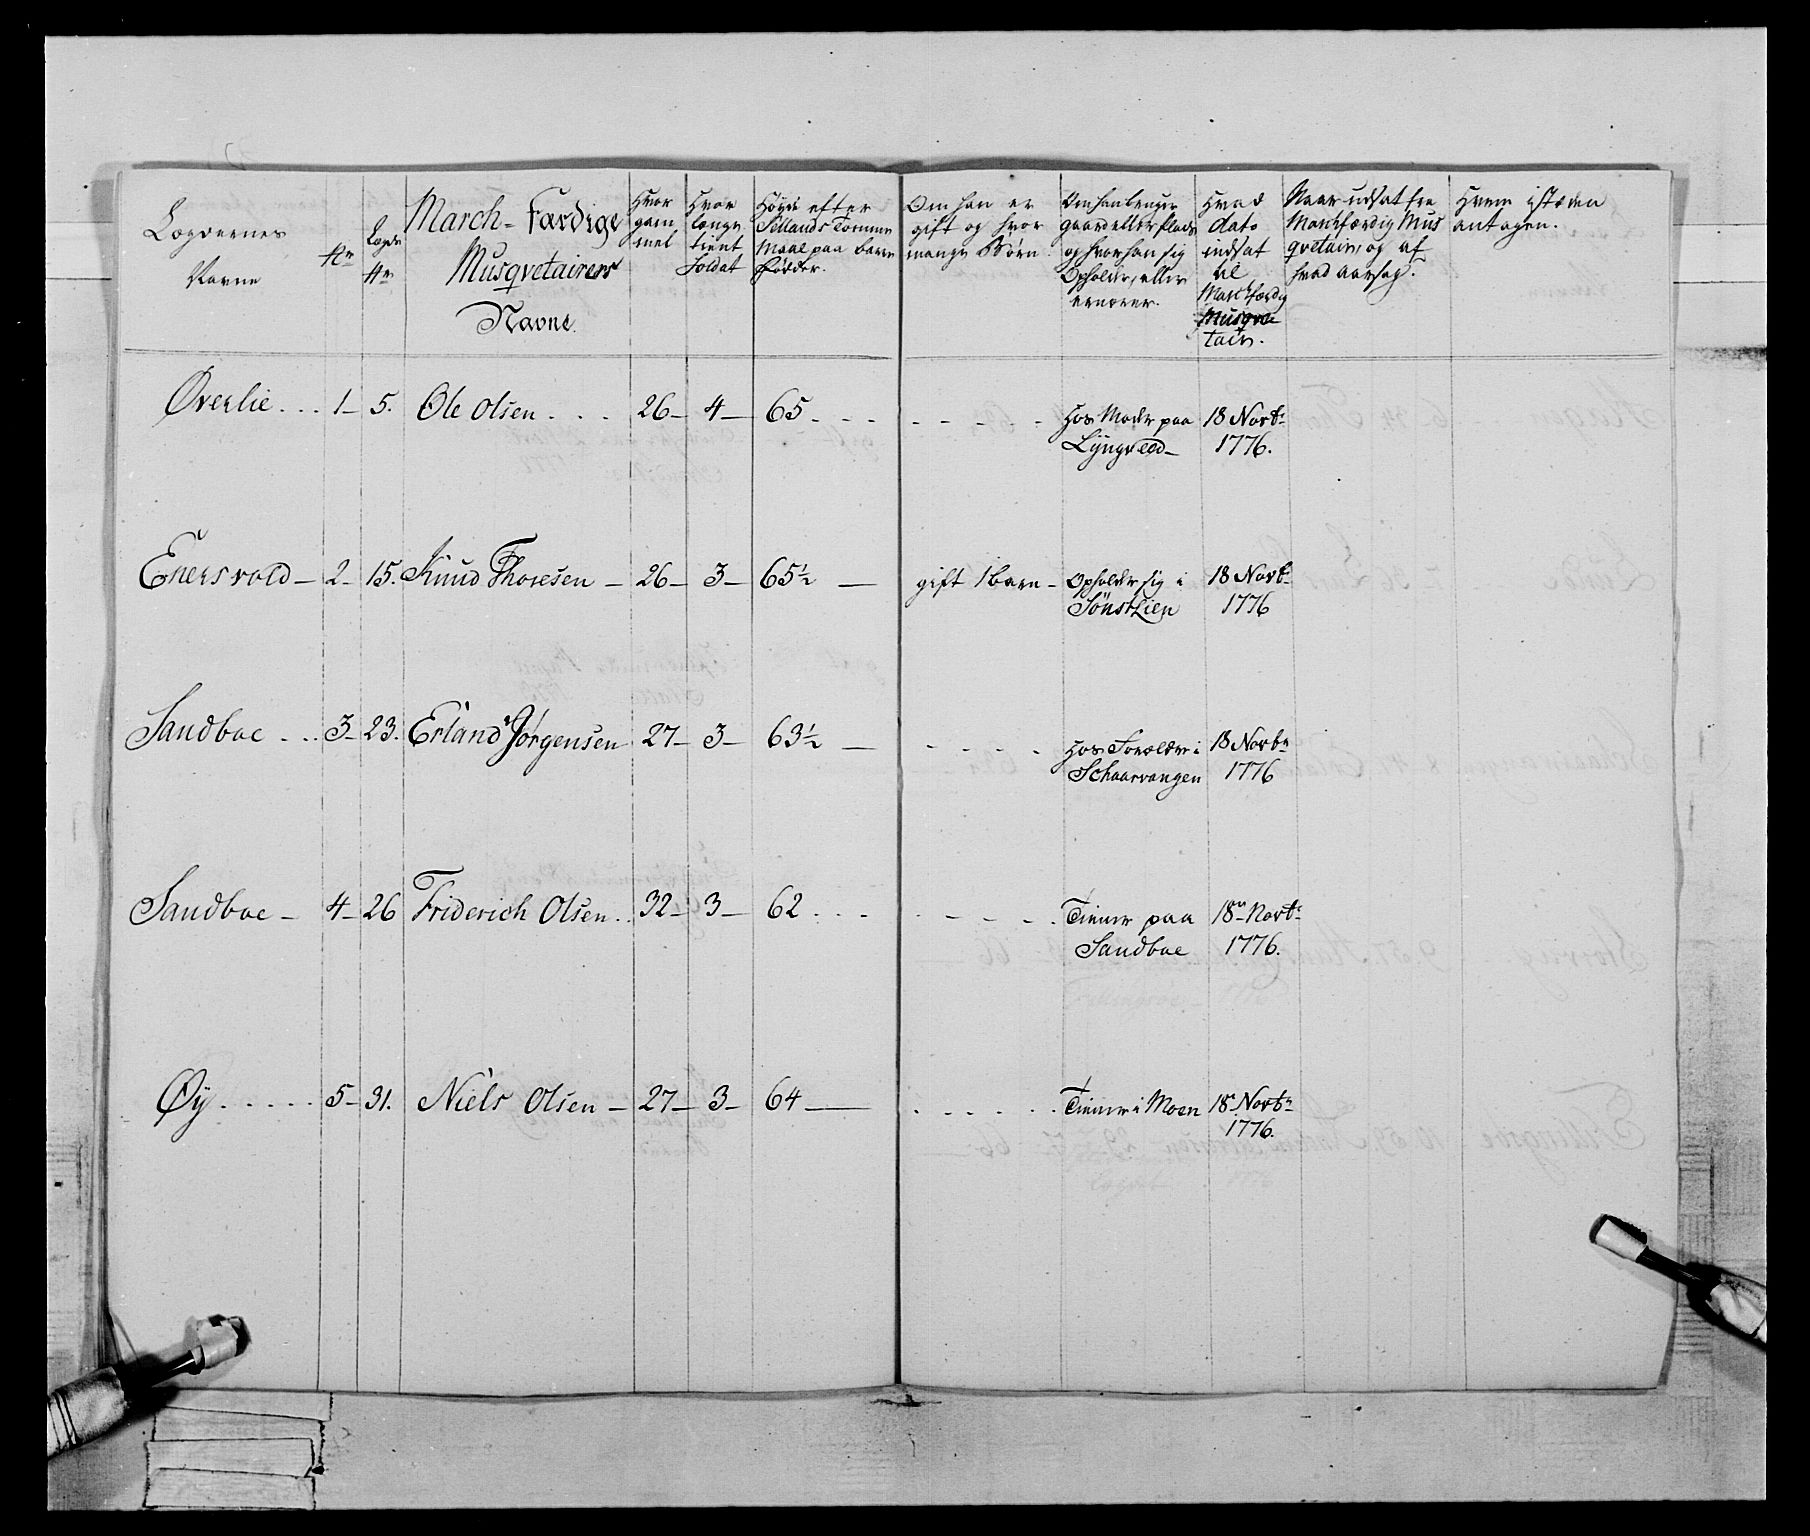 Lægdernes
Navne
Nr
Lægds
Nr
March-Færdige
Musqvetairers
Navne.
Hvor
gam
mel
Hvor
længe
tient
Soldat
Høyde efter
Sellands Tomme
Maal paa bare
Fødder.
Om han er
gift og hvor
mange Børn.
Om han bruger
gaard eller plads
og hvor han sig
Opholder, eller
ernærer.
Hvad
dato
indsat
til
Marchfærdig
Musqve
tair.
Naar udsat fra
Marchfærdig Mus
qvetair, og af
hvad aarsag.
Hvem i stæden
antagen.
Øverlie . . . 1- 5. Ole Olsen . . . 26- 4- 65 . . . Hos Moder paa 18 Novbr
Lyngveed- 1776.
Enersvold- 2- 15. Knud Thoresen- 26- 3- 65½ - gift 1 barn- Opholder sig i 18 Novbr
Sönstlien 1776
Sandboe . . . 3- 23. Erland Jörgensen 27- 3- 63½ - Hos Forældre i 18 Novbr
Schaarvangen 1776
Sandboe - 4- 26 Friderich Olsen . . 32- 3- 62 . . . Tiener paa 18de Novbr
Sandboe 1776.
Øy . . . . . 5- 31. Niels Olsen- 27- 3- 64 - Tiener i Moen 18de Novbr
1776.